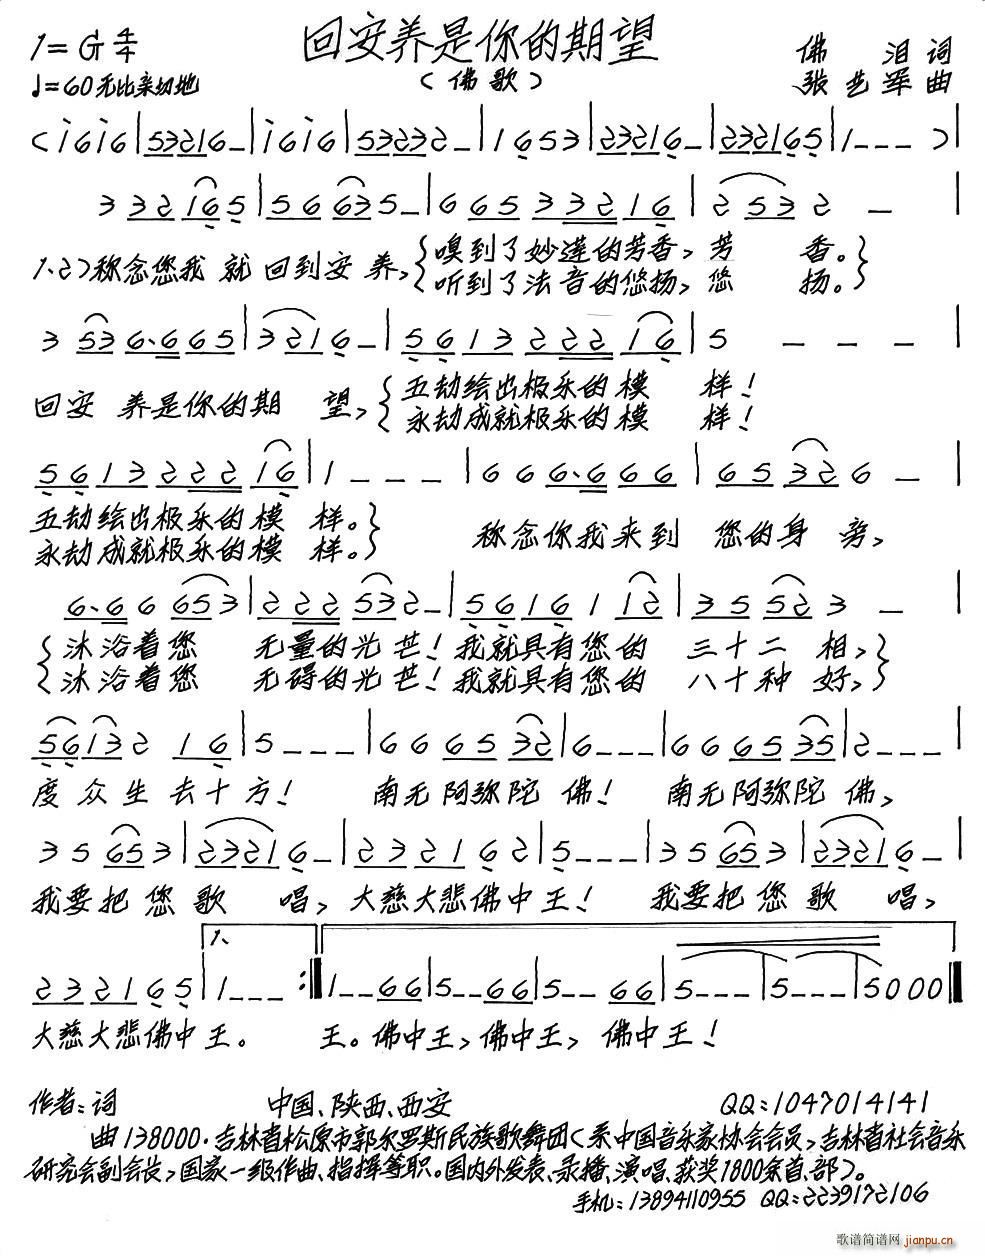 1=G 4/4
回安养是你的期望
♩=60 无比亲切地
(佛歌)
佛 泪 词
张艺军 曲
(i6i6|53216-|i6i6|53232-|1653|23216-|232165|1---)|
332165|56635-|66533221 6|2532-|
1.2)称念您我 就 回到安 养,{嗅到了妙莲的芳香,芳 香。}
{听到了法音的悠扬,悠 扬。}
3536·665|33216-|5613222 16|5---|
回安 养是你的期 望,{五劫绘出极乐的模 样!
{永劫成就极乐的模 样!
561322216|1---|666·666|65326-|
五劫绘出极乐的模 样。}
永劫成就极乐的模 样。}
称念你我来到 您的身 旁,
6·66653|222532-|5616112|35523-|
{沐浴着您 无量的光芒!我就具有您的 三十二 相,}
{沐浴着您 无碍的光芒!我就具有您的 八十种 好,}
5613216|5---|666532|6---|666535|2---|
度众生去十方! 南无阿弥陀 佛! 南无阿弥陀 佛,
35653|23216-|232162|5---|35653|23216-|
我要把您歌 唱,大慈大悲佛中王! 我要把您歌 唱,
1、
232165|1---:‖1--66|5--66|5--66|5---|5---|5000‖
大慈大悲佛中王。 王。佛中王,佛中王, 佛中王!
作者:词 中国、陕西、西安 QQ:1047014141
曲138000·吉林省松原市郭尔罗斯民族歌舞团(系中国音乐家协会会员,吉林省社会音乐
研究会副会长,国家一级作曲、指挥等职。国内外发表、录播、演唱、获奖1800余首、部)。
手机:13894110955 QQ:2239172106
歌谱简谱网
jianpu.cn